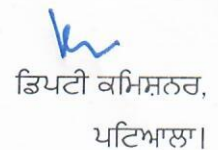 ਡਿਪਟੀ ਕਮਿਸ਼ਨਰ,
ਪਟਿਆਲਾ।